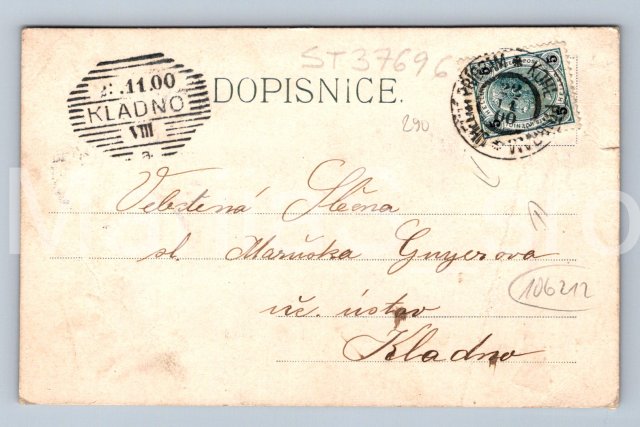 ST37696
.11.00
KLADNO
VIII
a.
DOPISNICE.
290
22
11
00
5
5
Velectená Slečna
sl. Maruška Guyerova
uč. ústav
Kladno
106212